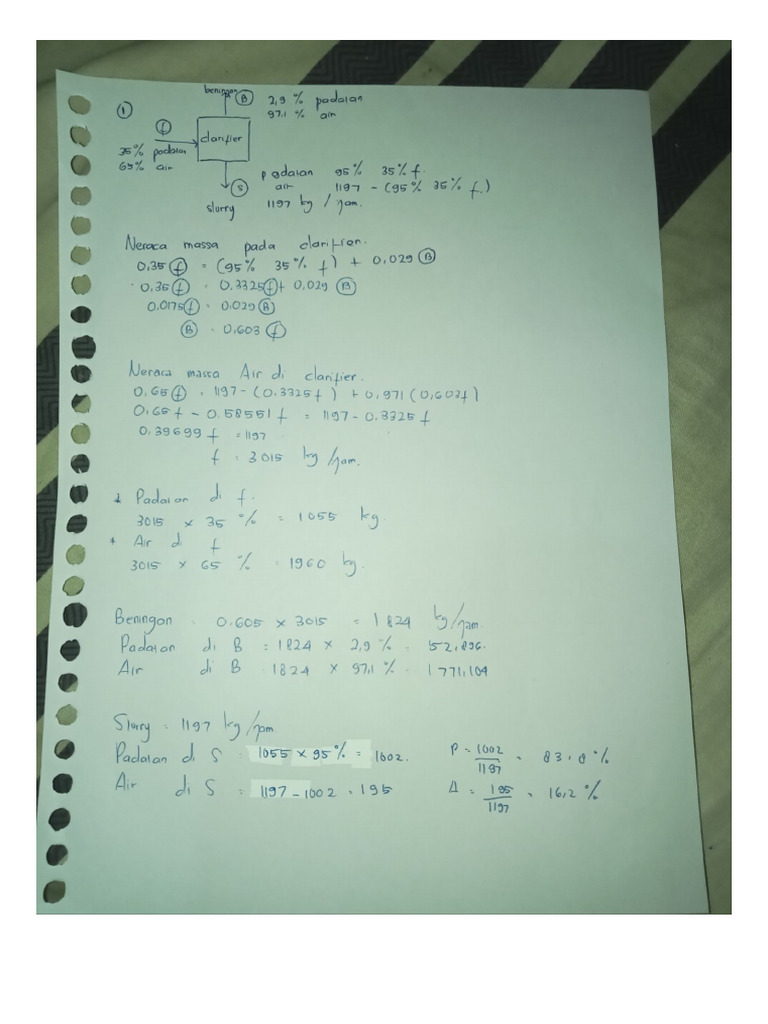 1
beningan B 2,9 % padatan
97.1 % air
f
clarifier
35% padatan
65% air
S
slurry
padatan 95% 35% f.
air 1197 - (95% 35% f.)
1197 kg / jam.
Neraca massa pada clarifier.
0,35 f = (95% 35% f) + 0,029 B
0.35 f = 0.3325 f + 0,029 B
0,0175 f = 0.029 B
B = 0,603 f
Neraca massa Air di clarifier.
0.65 f = 1197 - (0.3325 f) + 0,971 (0,603f)
0.65 f - 0.58551 f = 1197 - 0.3325 f
0.39699 f = 1197
f = 3015 kg/jam.
* Padatan di f.
3015 x 35 % = 1055 kg.
* Air di f
3015 x 65 % = 1960 kg.
Beningan = 0.605 x 3015 = 1824 kg/jam.
Padatan di B = 1824 x 2,9 % = 52,896.
Air di B = 1824 x 97,1 % = 1771,104
Slurry = 1197 kg/jam
Padatan di S = 1055 x 95% = 1002. P = 1002/1197 = 83.8 %
Air di S = 1197 - 1002 = 195 A = 195/1197 = 16,2 %